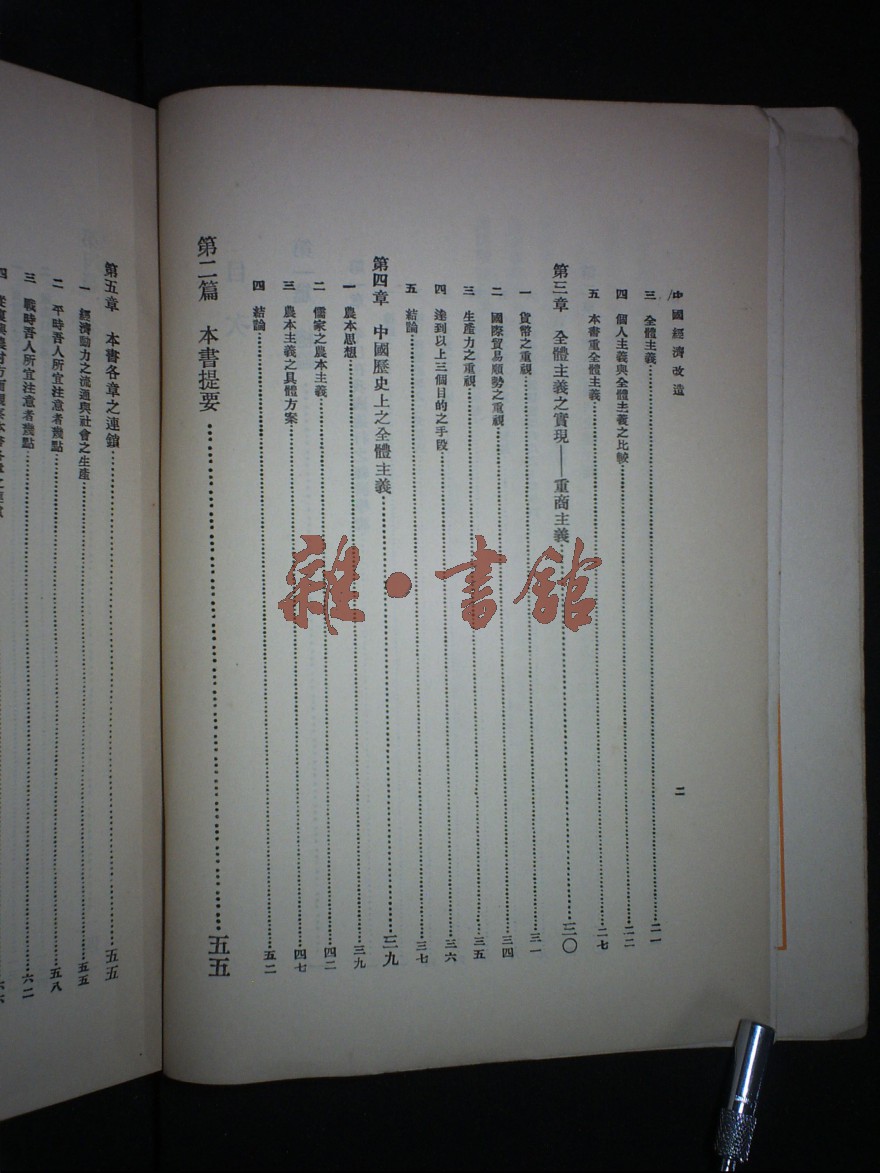 中國經濟改造
二
三 全體主義……二一
四 個人主義與全體主義之比較……二二
五 本書重全體主義……二七
第三章 全體主義之實現——重商主義……三〇
一 貨幣之重視……三一
二 國際貿易順勢之重視……三四
三 生產力之重視……三五
四 達到以上三個目的之手段……三六
五 結論……三七
第四章 中國歷史上之全體主義……三九
一 農本思想……三九
二 儒家之農本主義……四二
三 農本主義之具體方案……四七
四 結論……五二
第二篇 本書提要……五五
第五章 本書各章之連鎖……五五
一 經濟動力之流通與社會之生產……五五
二 平時吾人所宜注意者幾點……五八
三 戰時吾人所宜注意者幾點……六二
雜·書館